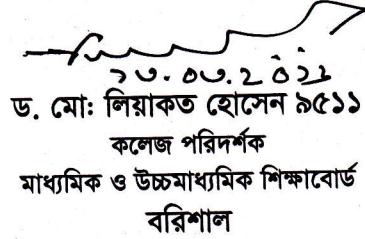 ড. মোঃ লিয়াকত হোসেন ৯৫১১
কলেজ পরিদর্শক
মাধ্যমিক ও উচ্চমাধ্যমিক শিক্ষাবোর্ড
বরিশাল